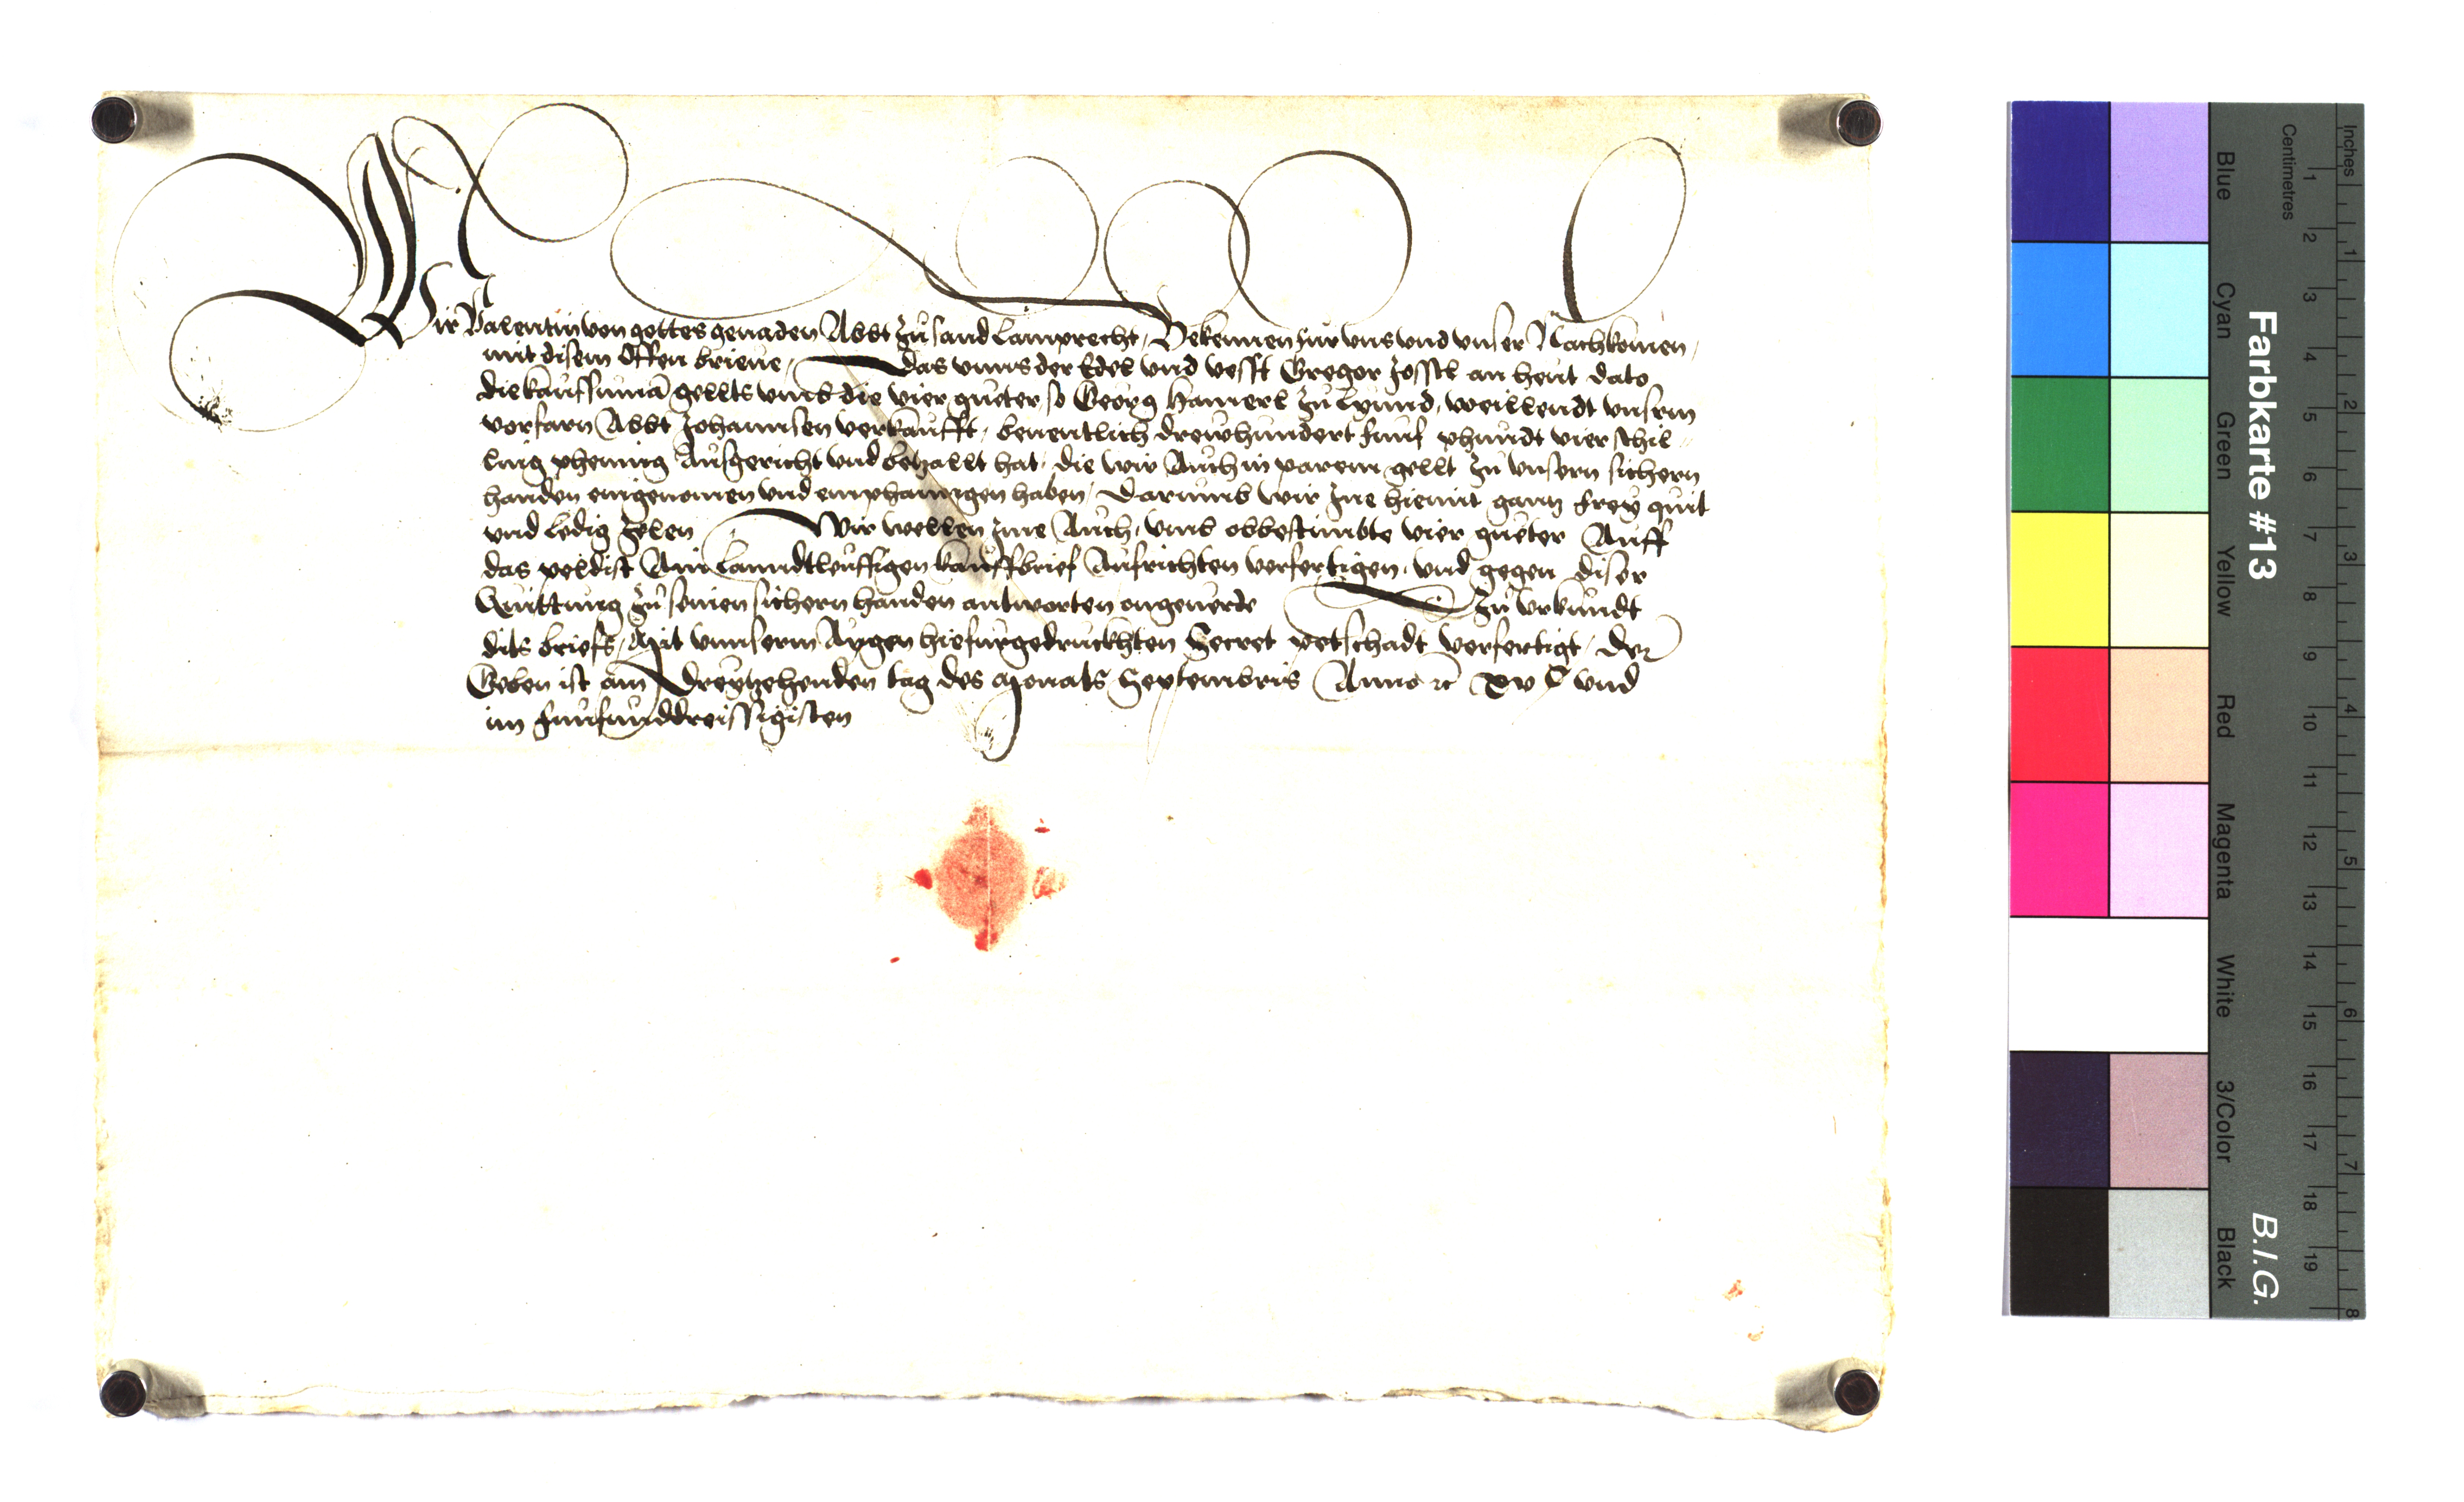 Wir Valentin von gottes genaden Abbt zu sand Lamprecht, Bekennen für uns und unser Nachkomen,
mit disem offen brieue, Das unns der Edel und vesst Gregor Jösstl an heut dato
die kaufsumā gellts umb die vier gueter, so Georg Hamerl zu Lynnd, weillendt unserm
vorfarn Abbt Johannsen verkaufft, benentlich drewhundert funf phundt vier schil
ling phening Ausgericht und betzallt hat, die wir Auch in parem gellt zu unsern sichern
handen eingenomen und emphanngen haben, Darumb wir Ine hiemit gantz frey quit
und ledig zelen Wir wellen Ime Auch, umb obbestimbte vier gueter Auff
das peldist Ain Lanndtleuffigen kauffbrief Aufrichten verfertigen, und gegen diser
Quittung zu seinen sichern handen antworten ongeuerde Zu Urkundt
dits briefs, Mit unnserm Aygen hiefurgedruckhten Secret petschadt verfertigt, Der
Geben ist am Dreytzehenden tag des Monats Septembris Anno ꝛc xv C und
im funfunddreissigisten
Farbkarte #13
B.I.G.
Centimetres
Inches
Blue
Cyan
Green
Yellow
Red
Magenta
White
3/Color
Black
1 2 3 4 5 6 7 8 9 10 11 12 13 14 15 16 17 18 19
1 2 3 4 5 6 7 8